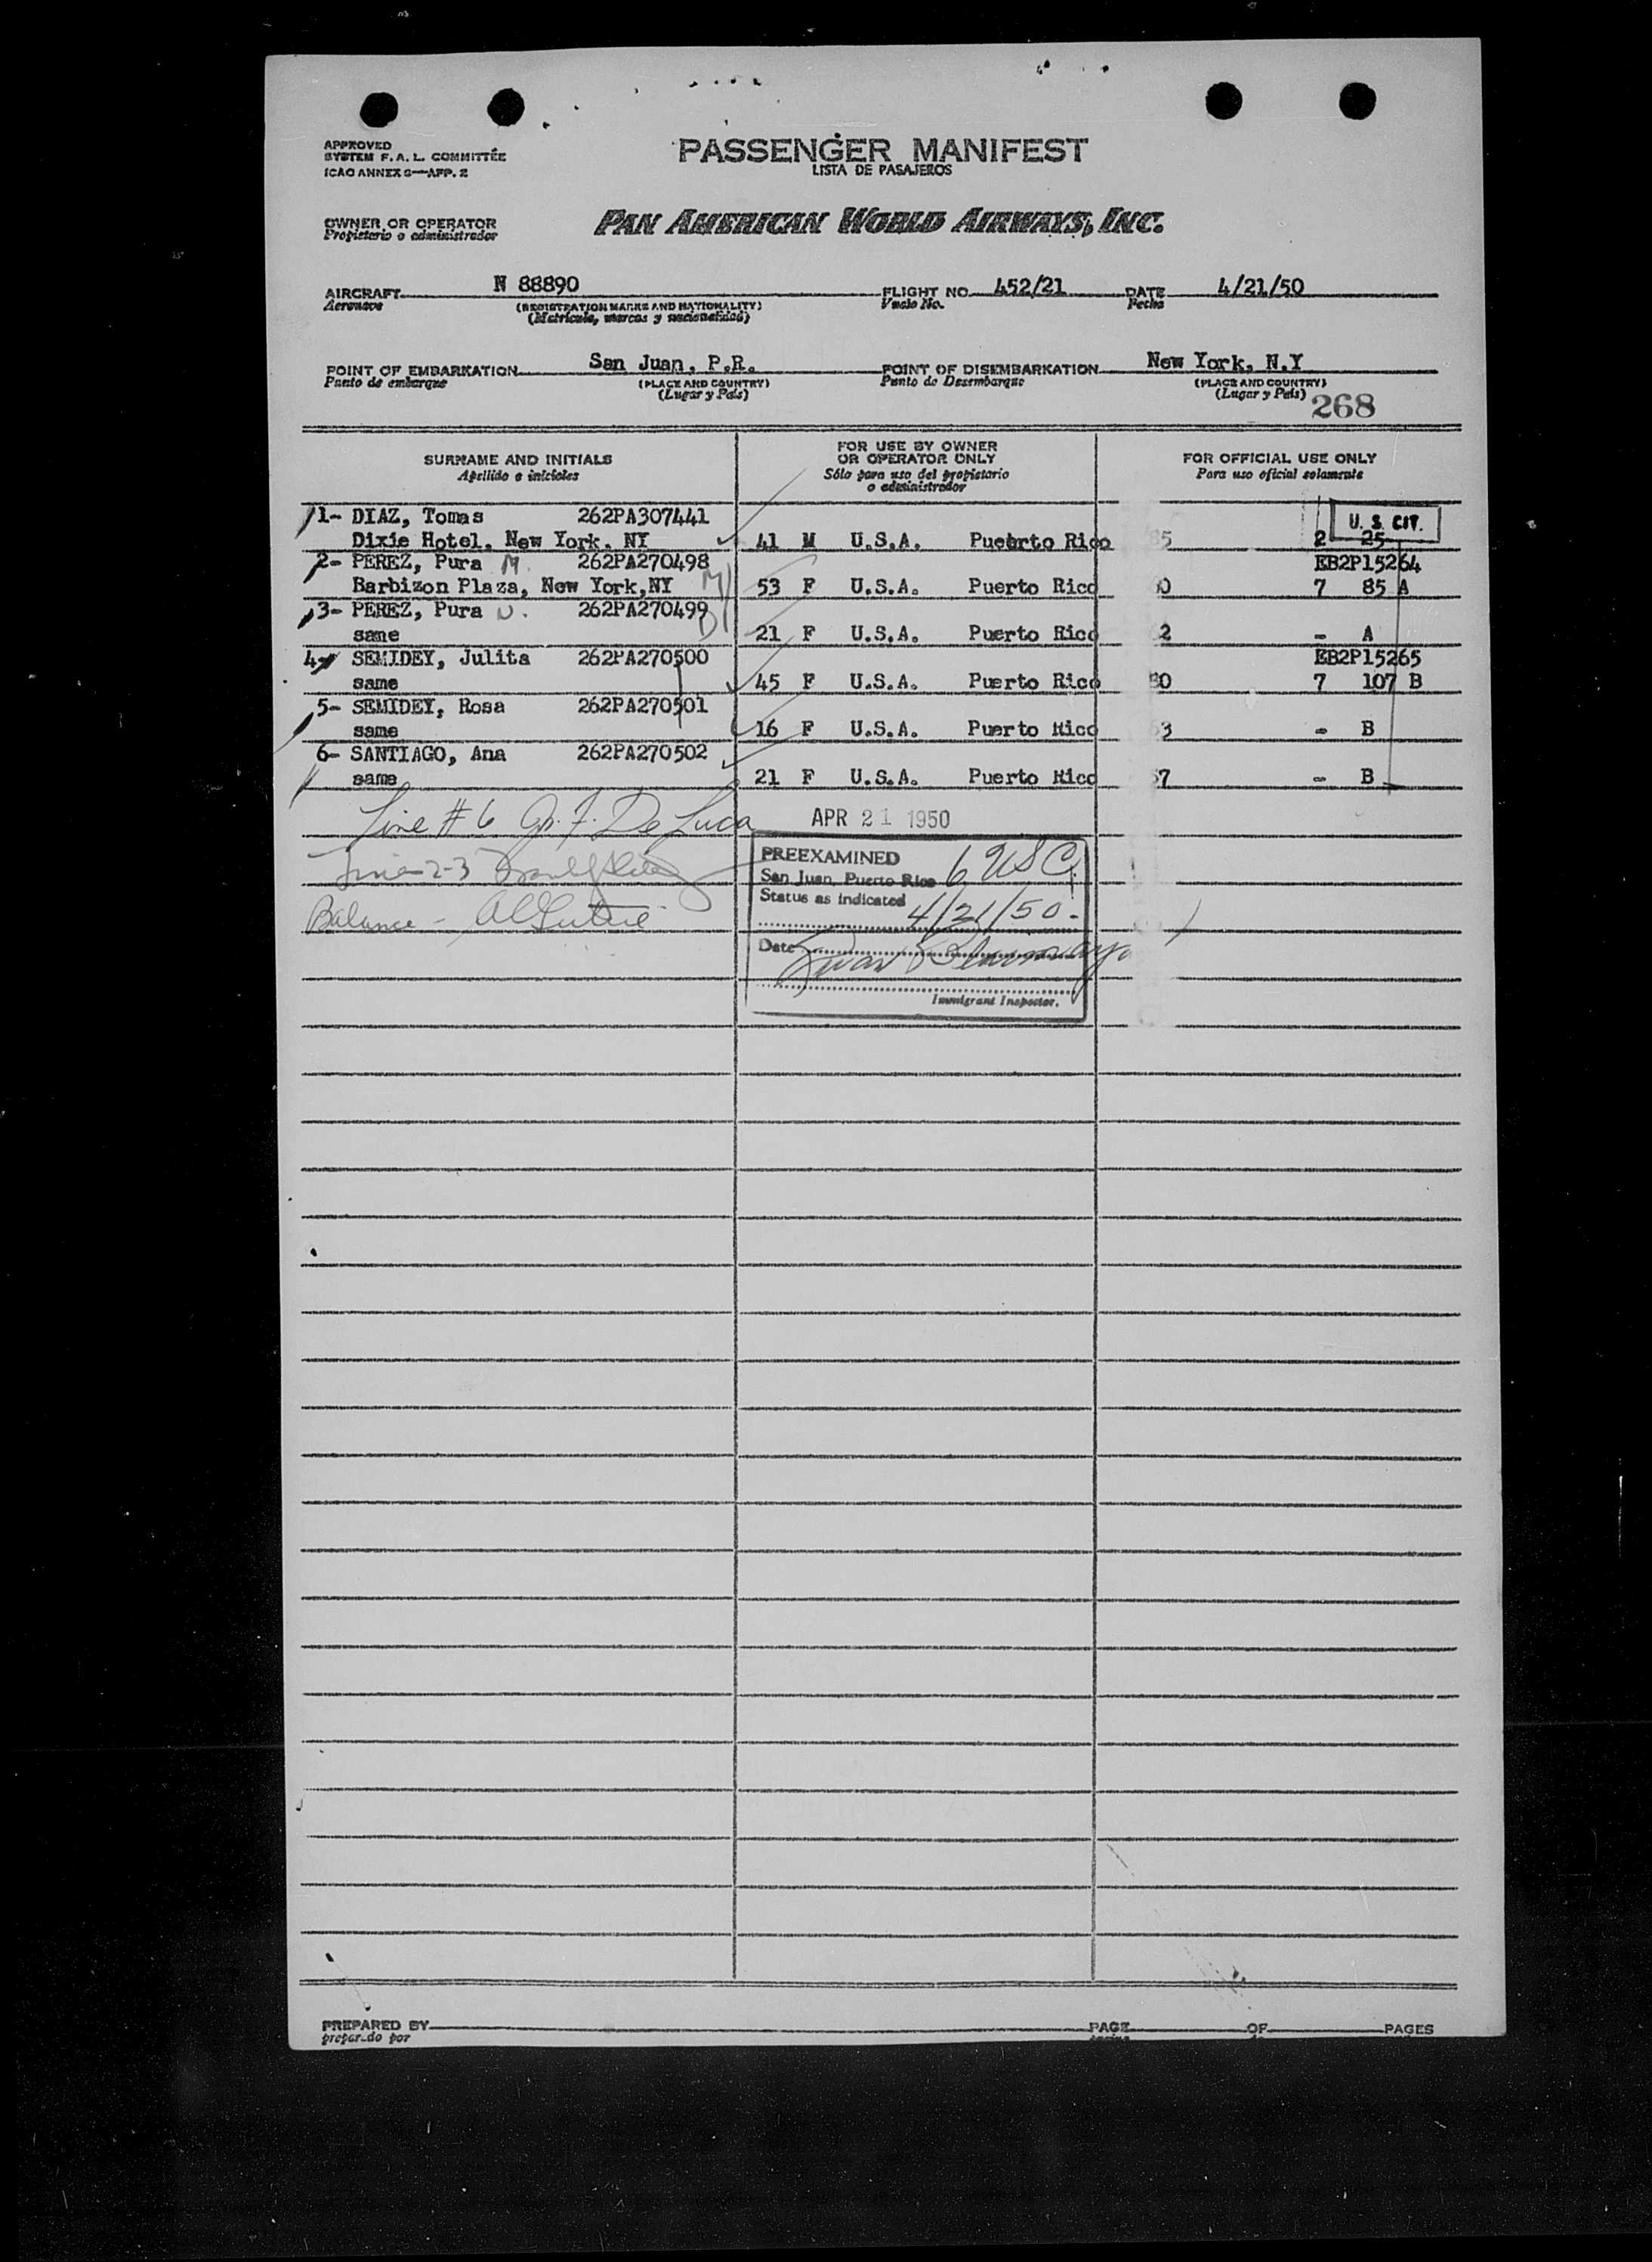 APPROVED
SYSTEM F. A. L. COMMITTEE
ICAO ANNEX 9—APP. 2
PASSENGER MANIFEST
LISTA DE PASAJEROS
OWNER OR OPERATOR
Propietario o administrador
PAN AMERICAN WORLD AIRWAYS, INC.
AIRCRAFT N 88890 FLIGHT NO. 452/21 DATE 4/21/50
Aeronave (REGISTRATION MARKS AND NATIONALITY) Vuelo No. Fecha
(Matrícula, marcas y nacionalidad)
POINT OF EMBARKATION San Juan, P.R. POINT OF DISEMBARKATION New York, N.Y
Punto de embarque (PLACE AND COUNTRY) Punto de Desembarque (PLACE AND COUNTRY)
(Lugar y País) (Lugar y País) 268
SURNAME AND INITIALS
Apellido e iniciales
FOR USE BY OWNER
OR OPERATOR ONLY
Sólo para uso del propietario
o administrador
FOR OFFICIAL USE ONLY
Para uso oficial solamente
1- DIAZ, Tomas 262PA307441 U. S. CIT.
Dixie Hotel, New York, NY 41 M U.S.A. Puerto Rico 85 2 25
2- PEREZ, Pura M. 262PA270498 EB2P15264
Barbizon Plaza, New York,NY 53 F U.S.A. Puerto Rico 0 7 85 A
3- PEREZ, Pura 262PA270499
same 21 F U.S.A. Puerto Rico 2 - A
4- SEMIDEY, Julita 262PA270500 EB2P15265
same 45 F U.S.A. Puerto Rico 0 7 107 B
5- SEMIDEY, Rosa 262PA270501
same 16 F U.S.A. Puerto Rico 3 - B
6- SANTIAGO, Ana 262PA270502
same 21 F U.S.A. Puerto Rico 7 - B
Line # 6 De Luca
APR 21 1950
Line 2-3
Balance -
PREEXAMINED
San Juan, Puerto Rico 6 USC
Status as indicated
4/21/50
Date
Immigrant Inspector.
PREPARED BY PAGE OF PAGES
preparado por